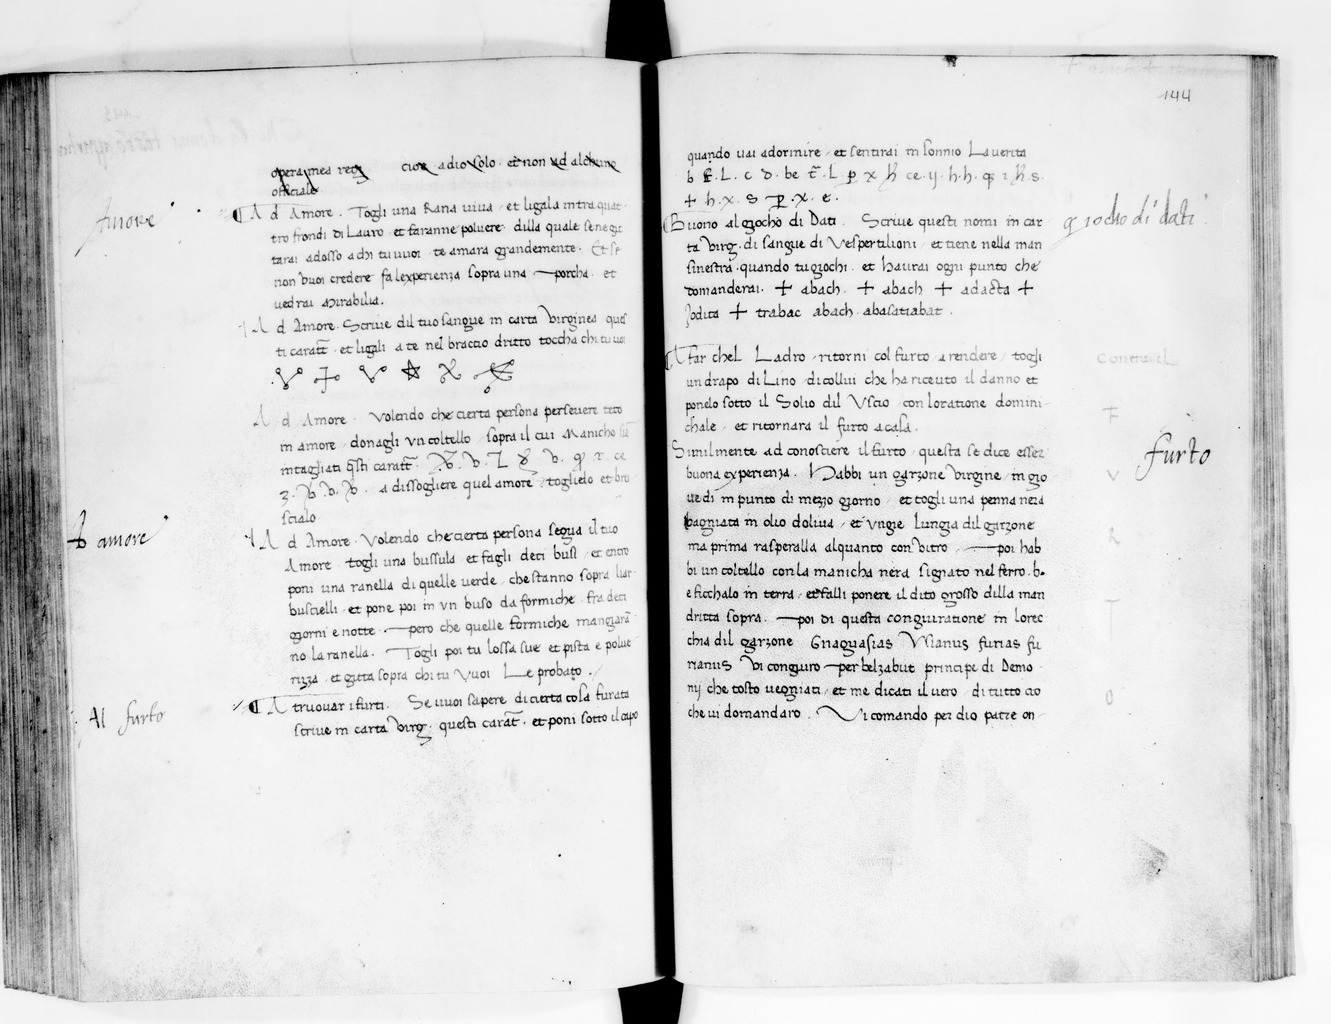 opera mea reg cioe adio solo · et non ad alchuno
officiale
Amore
Ad Amore . Togli una Rana viva , et ligala intra quat
tro frondi di Lauro , et faranne polvere , dilla quale se ne git
tarai adosso a chi tu vuoi , te amara grandemente . Et se
non vuoi credere fa lexperienza sopra una porcha , et
vedrai Mirabilia .
Ad Amore . Scrive dil tuo sangue in carta Virginea ques
ti caratt , et ligali a te nel braccio dritto toccha chi tu voi
Ad Amore . Volendo che cierta persona persevere teco
in amore , donagli un coltello , sopra il cui Manicho su
intagliati qsti caratt .
a dissogliere quel amore , toglielo et bru
scialo
Ad amore
Ad Amore . Volendo che cierta persona segua il tuo
Amore , togli una bussula et fagli deci busi , et entro
poni una ranella di quelle verde , che stanno sopra liar
buscielli , et pone poi in un buso da formiche , fra deci
giorni e notte , pero che quelle formiche mangiara
no la ranella . Togli poi tu lossa sue et pista e polve
rizza , et gitta sopra chi tu vuoi Le probato .
Al furto
A truovar i furti . Se vuoi sapere di cierta cosa furata
scrive in carta Virg . questi carat . et poni sotto il capo
144
quando vai adormire , et sentirai in sonnio La verita
b . L . c d . be t . L p x h ce . y . h . h . q 2 h . s .
+ h . x . s p . x . e .
giocho di dati
Buono al giocho di Dati . Scrive questi nomi in car
ta Virg . di sangue di Vespertilioni , et tiene nella man
sinestra . quando tu giochi . et haurai ogni punto che
domanderai . + abach . + abach + adacta +
Jodita + trabac abach . abasatiabat .
Contra il
F
V
R
T
O
A far chel Ladro , ritorni col furto , a rendere , togli
un drapo di Lino , di collui che ha riceuto il danno et
ponelo sotto il Solio dil Uscio , con loratione domini
chale , et ritornara il furto a casa .
furto
Similmente ad conosciere il furto , questa se dice esser
buona experienza . Habbi un garzone virgine , in gio
vedi in punto di mezzo giorno , et togli una penna nera
bagniata in olio doliva , et ungie Lungia dil garzone
ma prima rasperalla alquanto con vitro , poi hab
bi un coltello con la manicha nera signato nel ferro . b .
e ficchalo in terra , et falli ponere il dito grosso dilla man
dritta sopra . poi di questa congiuratione in lorec
chia dil garzone Gnaguasias Usianus furias fu
rianus Vi congiuro per belzabut principe di Demo
nij che tosto vegniati , et me dicati il vero , di tutto cio
che vi domandaro . Vi comando per dio patre on-